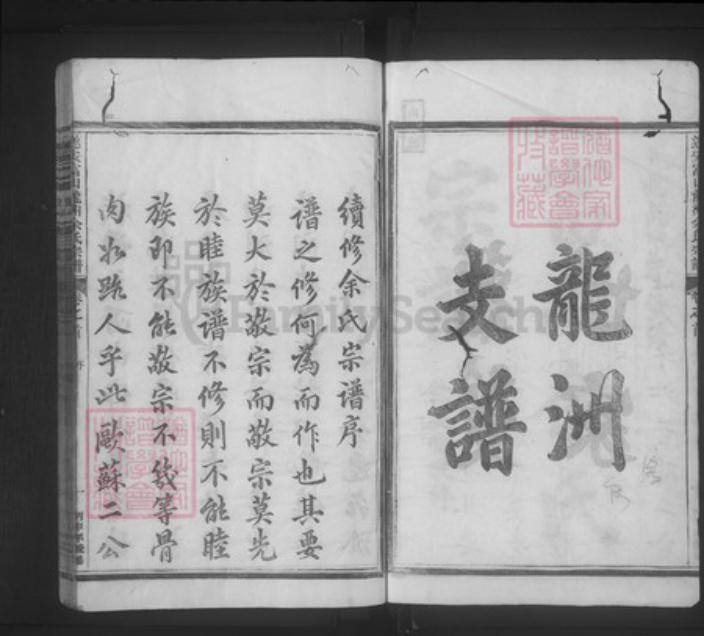 龍洲
支譜
續修余氏宗譜序
譜之修何為而作也其要
莫大於敬宗而敬宗莫先
於睦族譜不修則不能睦
族即不能敬宗不幾等骨
肉如路人乎此歐蘇二公
FamilySearch